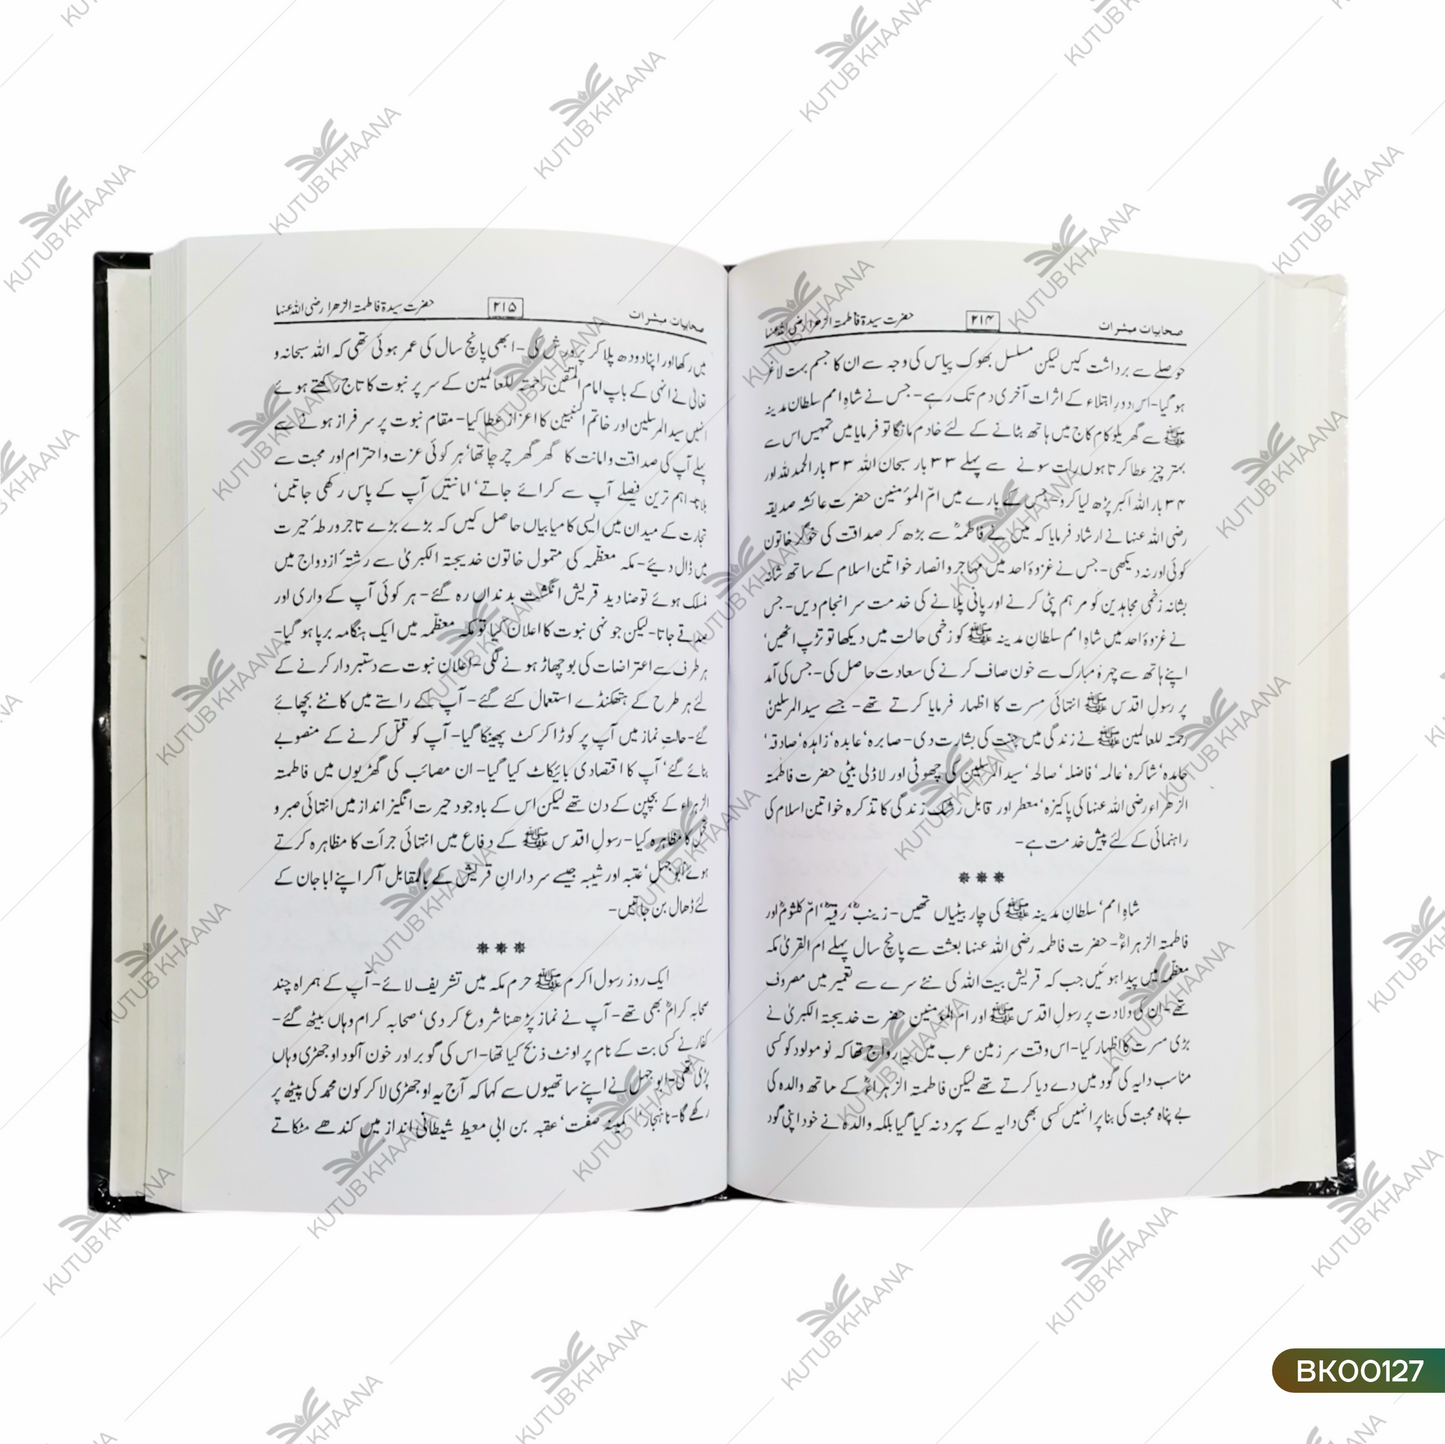 صحابیات مبشرات
۲۱۴
حضرت سیدۃ فاطمتہ الزھرا رضی اللہ عنہا
حوصلے سے برداشت کیں لیکن مسلسل بھوک پیاس کی وجہ سے ان کا جسم بہت لاغر
ہو گیا- اس دورِ ابتلاء کے اثرات آخری دم تک رہے- جس نے شاہِ امم سلطان مدینہ
ﷺ سے گھریلو کام کاج میں ہاتھ بٹانے کے لئے خادم مانگا تو فرمایا میں تمہیں اس سے
بہتر چیز عطا کرتا ہوں رات سونے سے پہلے ۳۳ بار سبحان اللہ ۳۳ بار الحمد للہ اور
۳۴ بار اللہ اکبر پڑھ لیا کرو- جس کے بارے میں امّ المؤمنین حضرت عائشہ صدیقہ
رضی اللہ عنہا نے ارشاد فرمایا کہ میں نے فاطمہؓ سے بڑھ کر صداقت کی خوگر خاتون
کوئی اور نہ دیکھی- جس نے غزوۂ احد میں مہاجر و انصار خواتین اسلام کے ساتھ شانہ
بشانہ زخمی مجاہدین کو مرہم پٹی کرنے اور پانی پلانے کی خدمت سر انجام دیں- جس
نے غزوۂ احد میں شاہِ امم سلطانِ مدینہ ﷺ کو زخمی حالت میں دیکھا تو تڑپ اٹھیں'
اپنے ہاتھ سے چہرۂ مبارک سے خون صاف کرنے کی سعادت حاصل کی- جس کی آمد
پر رسولِ اقدس ﷺ انتہائی مسرت کا اظہار فرمایا کرتے تھے- جسے سید المرسلین
رحمتہ للعالمین ﷺ نے زندگی میں جنت کی بشارت دی- صابرہ' عابدہ' زاہدہ' صادقہ'
حامدہ' شاکرہ' عالمہ' فاضلہ' صالحہ' سید المرسلین کی چھوٹی اور لاڈلی بیٹی حضرت فاطمتہ
الزھراء رضی اللہ عنہا کی پاکیزہ' معطر اور قابل رشک زندگی کا تذکرہ خواتین اسلام کی
راہنمائی کے لئے پیش خدمت ہے-
* * *
شاہِ امم' سلطانِ مدینہ ﷺ کی چار بیٹیاں تھیں- زینبؓ' رقیہؓ' امّ کلثومؓ اور
فاطمتہ الزہراءؓ- حضرت فاطمہ رضی اللہ عنہا بعثت سے پانچ سال پہلے ام القریٰ مکہ
معظّمہ میں پیدا ہوئیں جب کہ قریش بیت اللہ کی نئے سرے سے تعمیر میں مصروف
تھے- ان کی ولادت پر رسولِ اقدس ﷺ اور ام المؤمنین حضرت خدیجتہ الکبریٰ نے
بڑی مسرت کا اظہار کیا- اس وقت سر زمین عرب میں یہ رواج تھا کہ نو مولود کو کسی
مناسب دایہ کی گود میں دے دیا کرتے تھے لیکن فاطمتہ الزہراءؓ کے ساتھ والدہ کی
بے پناہ محبت کی بنا پر انہیں کسی بھی دایہ کے سپرد نہ کیا گیا بلکہ والدہ نے خود اپنی گود
صحابیات مبشرات
۲۱۵
حضرت سیدۃ فاطمتہ الزھرا رضی اللہ عنہا
میں رکھا اور اپنا دودھ پلا کر پرورش کی- ابھی پانچ سال کی عمر ہوئی تھی کہ اللہ سبحانہ و
تعالیٰ نے انہی کے باپ امام المتقین رحمتہ للعالمین کے سر پر نبوت کا تاج رکھتے ہوئے
انہیں سید المرسلین اور خاتم النبیین کا اعزاز عطا کیا- مقام نبوت پر سرفراز ہونے سے
پہلے آپ کی صداقت و امانت کا گھر گھر چرچا تھا' ہر کوئی عزت و احترام اور محبت سے
بلاتا- اہم ترین فیصلے آپ سے کرائے جاتے' امانتیں آپ کے پاس رکھی جاتیں'
تجارت کے میدان میں ایسی کامیابیاں حاصل کیں کہ بڑے بڑے تاجر ورطۂ حیرت
میں ڈال دیئے- مکہ معظّمہ کی متمول خاتون خدیجتہ الکبریٰ سے رشتۂ ازدواج میں
منسلک ہوئے تو صنادید قریش انگشت بدنداں رہ گئے- ہر کوئی آپ کے واری اور
صدقے جاتا- لیکن جو نہی نبوت کا اعلان کیا تو مکہ معظّمہ میں ایک ہنگامہ برپا ہو گیا-
ہر طرف سے اعتراضات کی بوچھاڑ ہونے لگی- اعلان نبوت سے دستبردار کرنے کے
لئے ہر طرح کے ہتھکنڈے استعمال کئے گئے- آپ کے راستے میں کانٹے بچھائے
گئے- حالتِ نماز میں آپ پر کوڑا کرکٹ پھینکا گیا- آپ کو قتل کرنے کے منصوبے
بنائے گئے' آپ کا اقتصادی بائیکاٹ کیا گیا- ان مصائب کی گھڑیوں میں فاطمتہ
الزہراء کے بچپن کے دن تھے لیکن اس کے باوجود حیرت انگیز انداز میں انتہائی صبر و
تحمل کا مظاہرہ کیا- رسولِ اقدس ﷺ کے دفاع میں انتہائی جرأت کا مظاہرہ کرتے
ہوئے ابوجہل' عتبہ اور شیبہ جیسے سردارانِ قریش کے بالمقابل آکر اپنے ابا جان کے
لئے ڈھال بن جاتیں-
* * *
ایک روز رسول اکرم ﷺ حرم مکہ میں تشریف لائے- آپ کے ہمراہ چند
صحابہ کرامؓ بھی تھے- آپ نے نماز پڑھنا شروع کر دی' صحابہ کرام وہاں بیٹھ گئے-
کفار نے کسی بت کے نام پر اونٹ ذبح کیا تھا- اس کی گوبر اور خون آلود اوجھڑی وہاں
پڑی تھی- ابو جہل نے اپنے ساتھیوں سے کہا کہ آج یہ اوجھڑی لا کر کون محمد کی پیٹھ پر
رکھے گا- ناہنجار' کمینہ صفت' عقبہ بن ابی معیط شیطانی انداز میں کندھے مٹکاتے
KUTUB KHAANA
BK00127